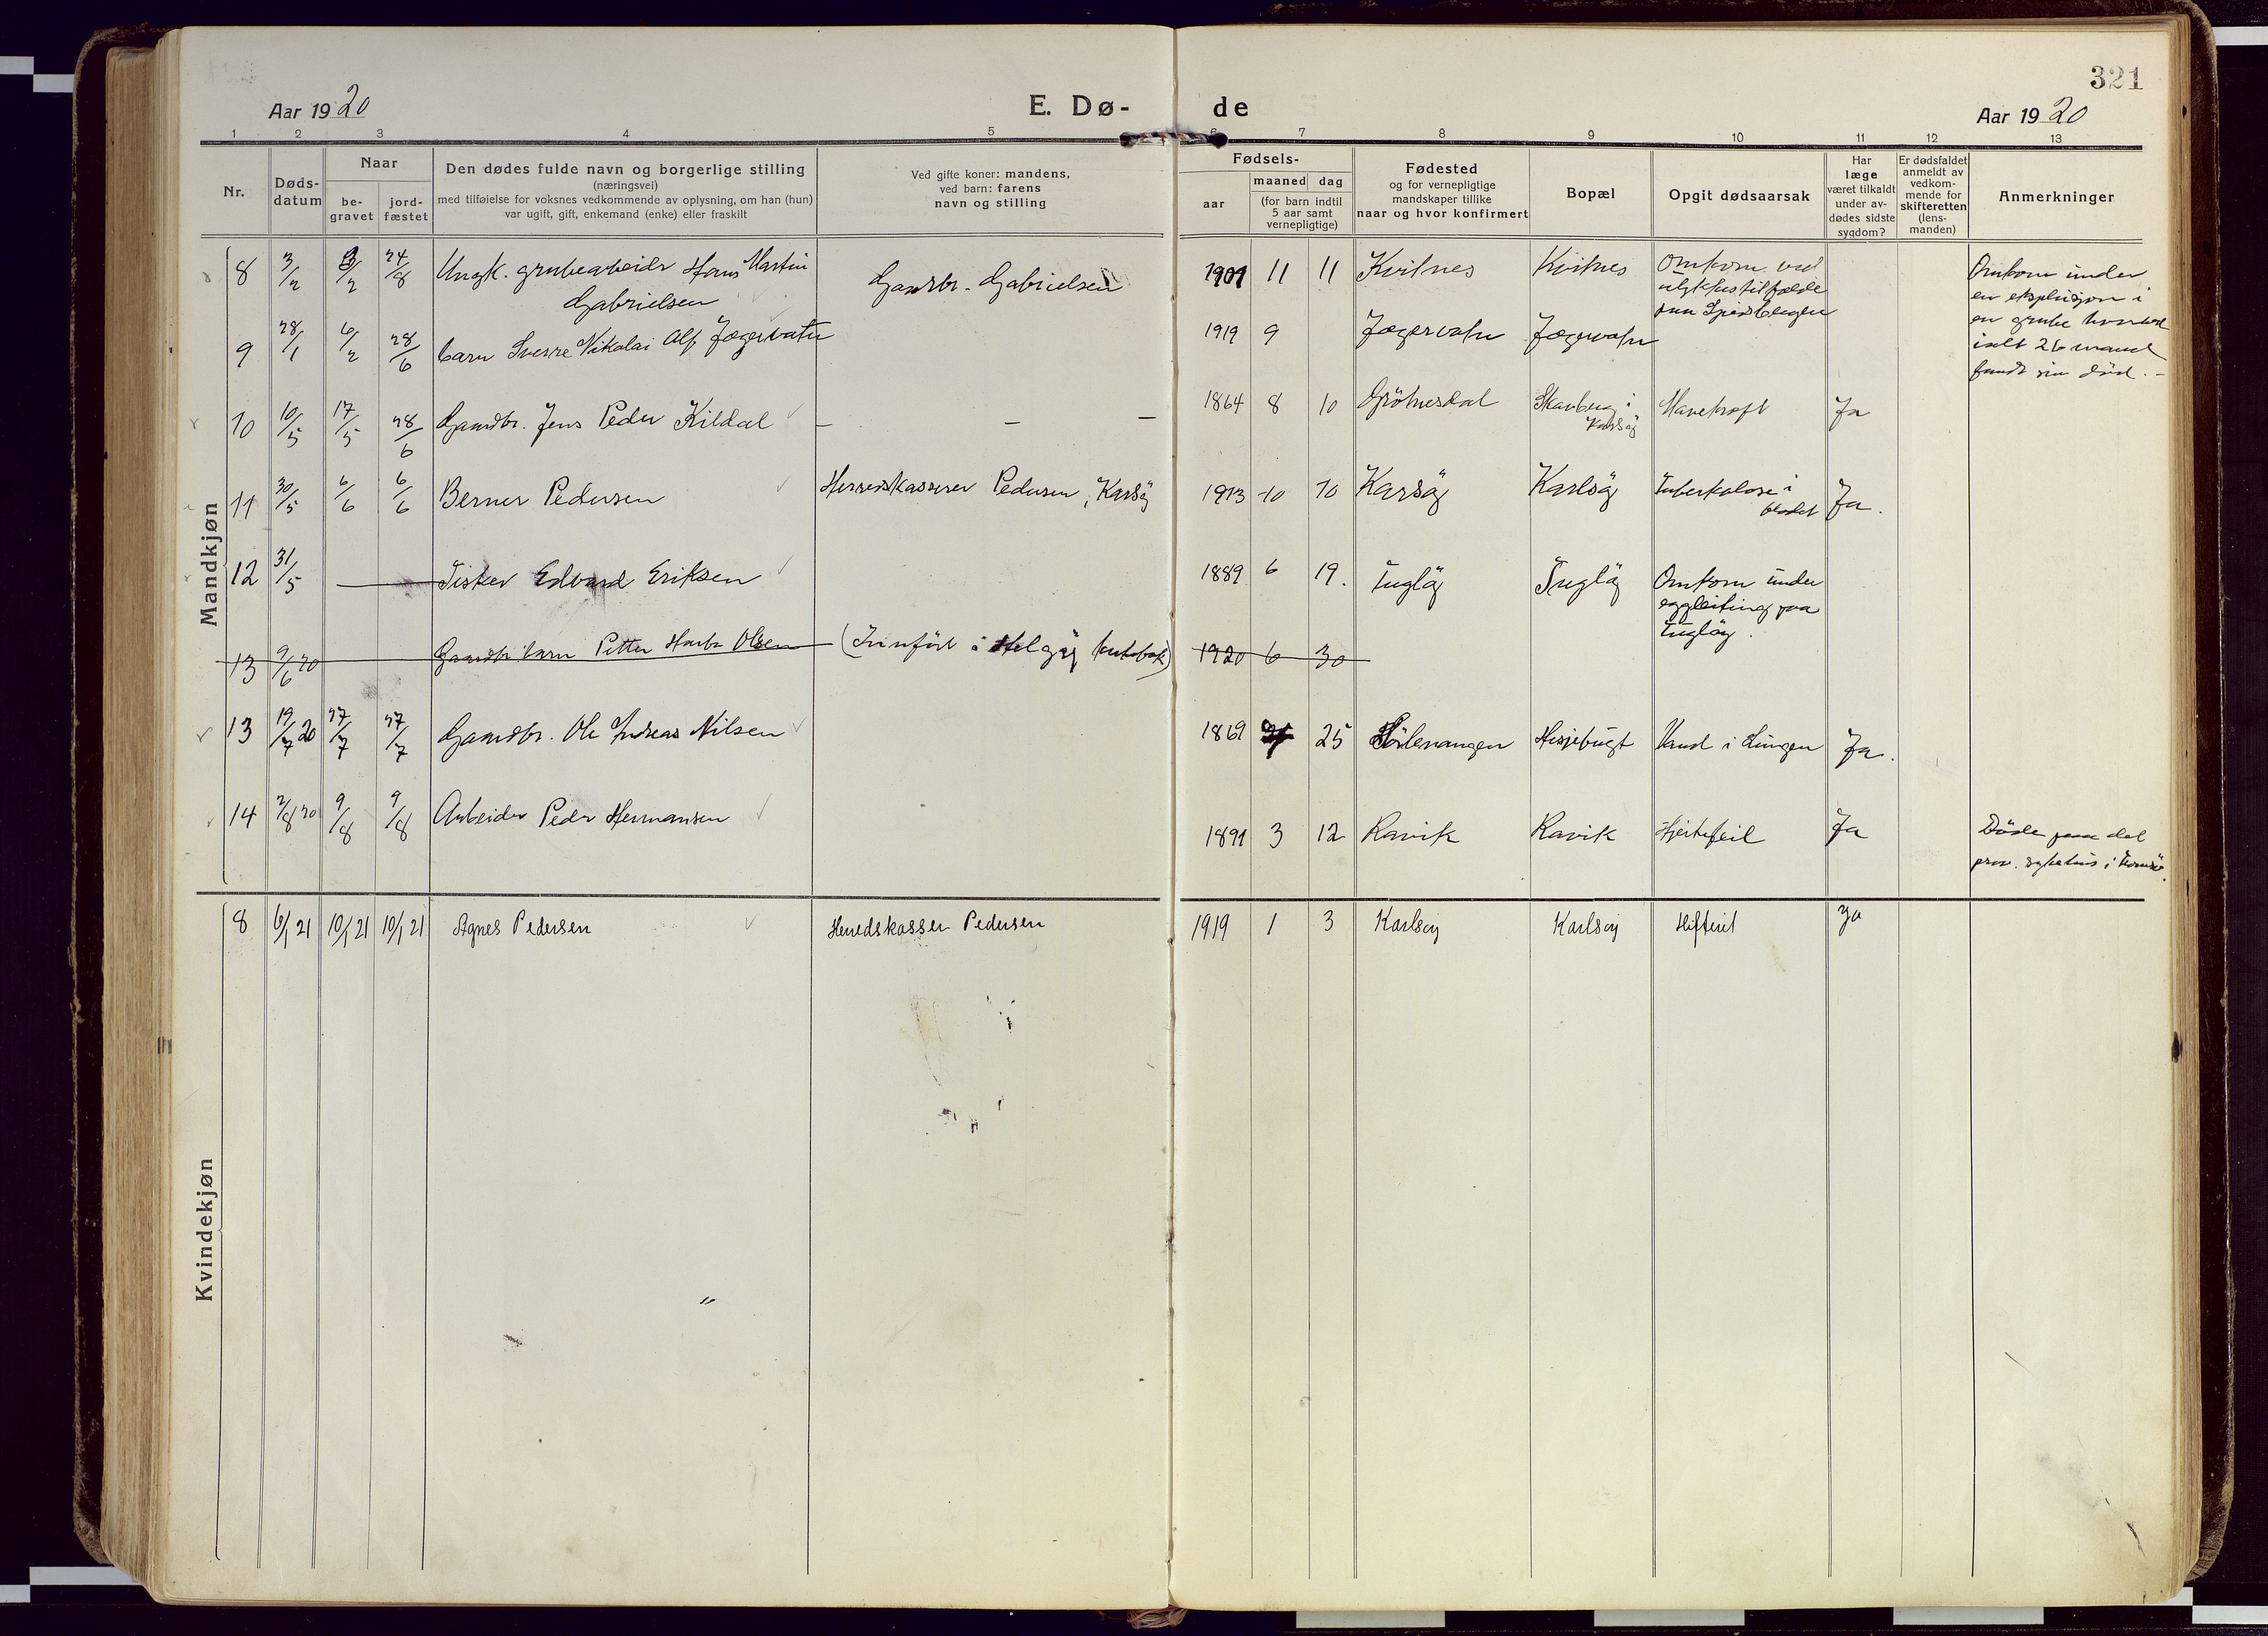 321
Aar 1920 E. Dø- de Aar 1920
1 2 3 4 5 6 7 8 9 10 11 12 13
Nr.
Døds-
datum
Naar
be-
gravet
jord-
fæstet
Den dødes fulde navn og borgerlige stilling
(næringsvei)
med tilføielse for voksnes vedkommende av oplysning, om han (hun)
var ugift, gift, enkemand (enke) eller fraskilt
Ved gifte koner: mandens,
ved barn: farens
navn og stilling
Fødsels-
aar
maaned dag
(for barn indtil
5 aar samt
vernepligtige)
Fødested
og for vernepligtige
mandskaper tillike
naar og hvor konfirmert
Bopæl
Opgit dødsaarsak
Har
læge
været tilkaldt
under av-
dødes sidste
sygdom?
Er dødsfaldet
anmeldt av
vedkom-
mende for
skifteretten
(lens-
manden)
Anmerkninger
Mandkjøn
8 3/2 3/2 24/8 Ungk. grubearbeider Hans Martin
Gabrielsen
Gaardbr. Gabrielsen 1901 11 11 Kvitnes Kvitnes Omkom ved
ulykkestilfælde
paa Spitsbergen
Omkom under
en eksplosjon i
en grube hvorved
ialt 26 mand
fandt sin död. -
9 28/1 6/2 28/6 barn Sverre Nikolai Alf Jægervatn 1919 9 Jægervatn Jægervatn
10 10/5 17/5 28/6 Gaardbr. Jens Peder Kildal - - - 1864 8 10 Grötnesdal Skavberg i
Karlsöy
Mavekræft Ja
11 30/5 6/6 6/6 Berner Pedersen Herredskasserer Pedersen, Karlsöy 1913 10 10 Karlsöy Karlsöy Tuberkolose i
blodet
Ja.
12 31/5 — Fisker Edvard Eriksen 1889 6 19. Fuglöy Fuglöy Omkom under
eggleiting paa
Fuglöy.
13 9/6 20 Gaardbr. barn Petter Olsen (Innfört i Helgöy kirkebok) 1920 6 30
13 19/7 20 27/7 27/7 Gaardbr. Ole Andreas Nilsen 1869 25 Sörlenangen Hessjebugt Vand i Lungen Ja.
14 2/8 20 9/8 9/8 Arbeider Peder Hermansen 1891 3 12 Ravik Ravik Hjertefeil Ja Döde paa det
prov. sykehus i Tromsö.
Kvindekjøn
8 6/1 21 10/1 21 10/1 21 Agnes Pedersen Herredskasser Pedersen 1919 1 3 Karlsöy Karlsöy Ja